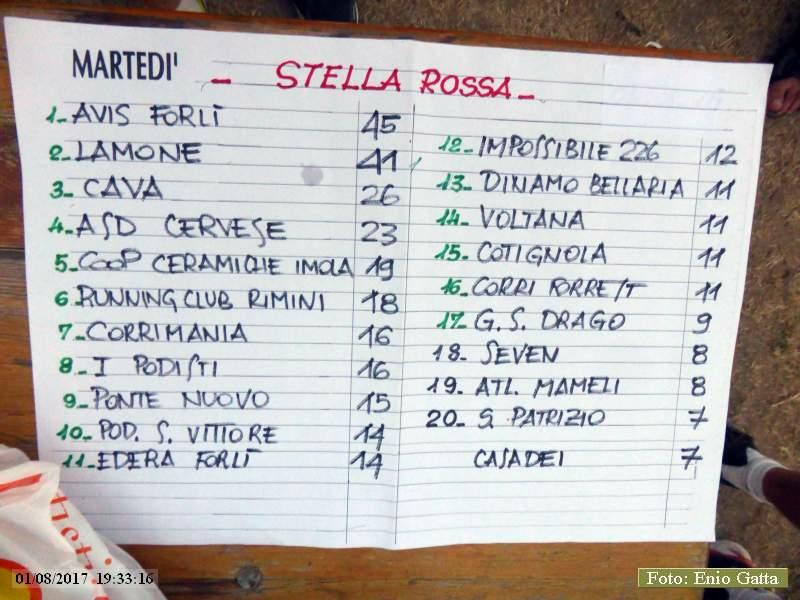 MARTEDI' - STELLA ROSSA -
1- AVIS FORLÌ 45
2- LAMONE 41
3- CAVA 26
4- ASD CERVESE 23
5- COOP CERAMICHE IMOLA 19
6 RUNNING CLUB RIMINI 18
7- CORRIMANIA 16
8- I PODISTI 16
9- PONTE NUOVO 15
10- POD. S. VITTORE 14
11- EDERA FORLÌ 14
12- IMPOSSIBILE 226 12
13- DINAMO BELLARIA 11
14- VOLTANA 11
15- COTIGNOLA 11
16- CORRI FORREST 11
17- G. S. DRAGO 9
18- SEVEN 8
19- ATL. MAMELI 8
20- S. PATRIZIO 7
CASADEI 7
01/08/2017 19:33:16
Foto: Enio Gatta